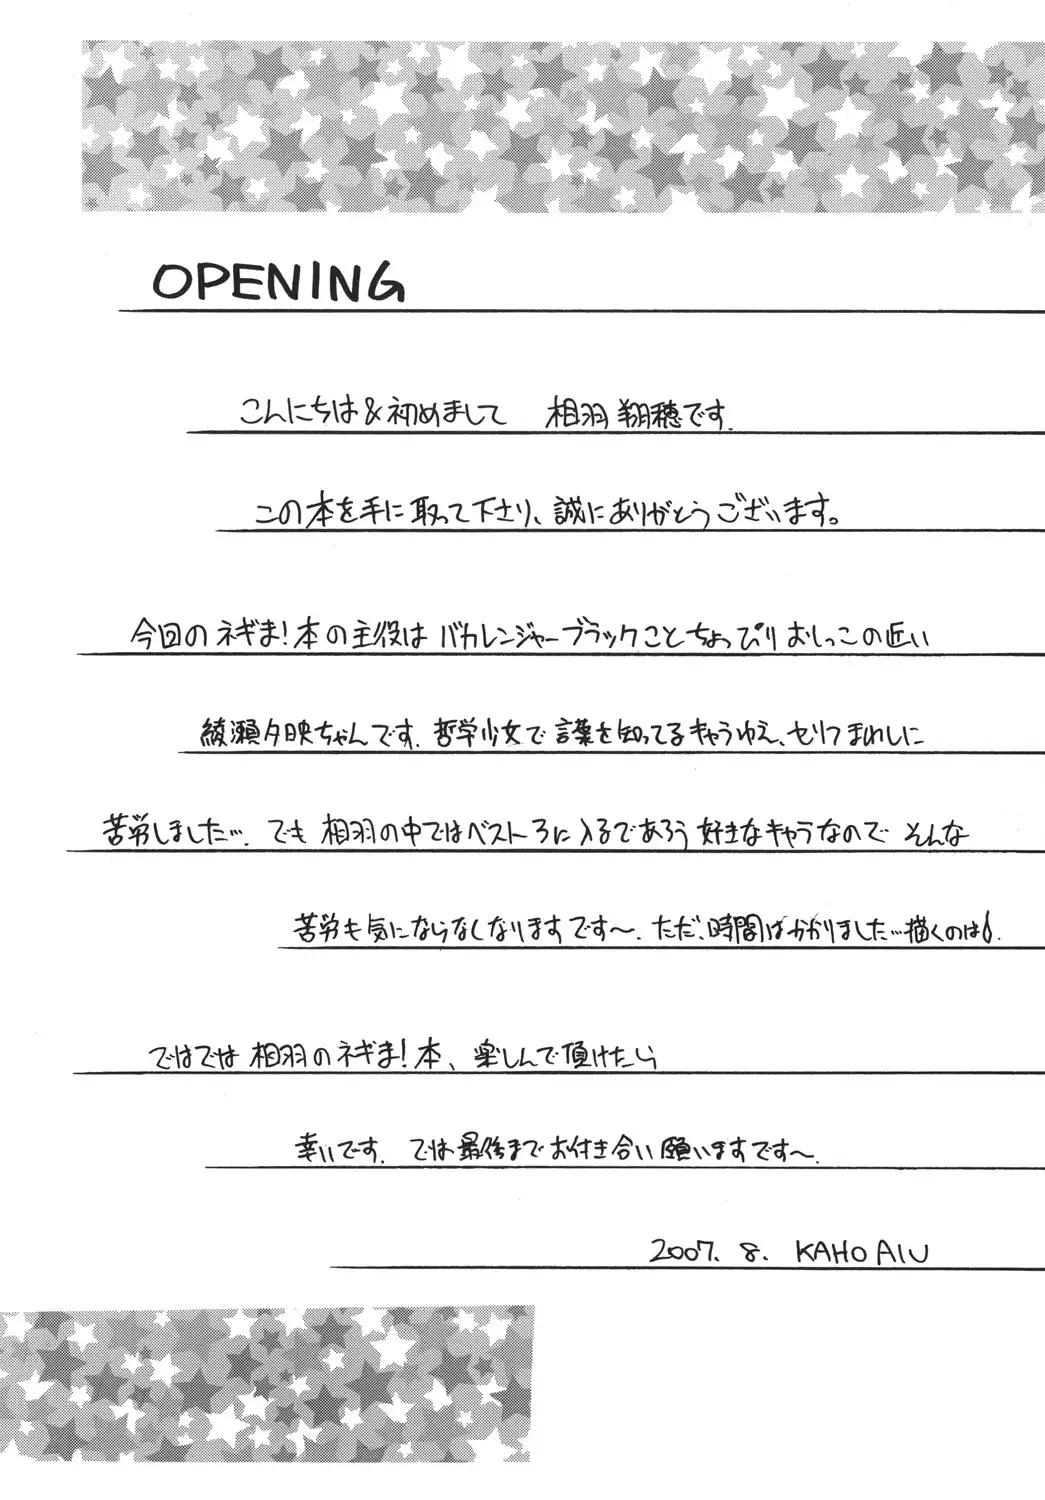 OPENING
こんにちは&初めまして 相羽翔穂です.
この本を手に取って下さり、誠にありがとうございます。
今回のネギま!本の主役はバカレンジャーブラックことちょっぴりおしっこの近い
綾瀬夕映ちゃんです. 哲学少女で言葉を知ってるキャラゆえ、セリフまわしに
苦労しました…. でも相羽の中ではベスト3に入るであろう好きなキャラなので そんな
苦労も気にならなくなりますです〜. ただ、時間はかかりました…描くのは.
ではでは相羽のネギま!本、楽しんで頂けたら
幸いです. では最後までお付き合い願いますです〜.
2007. 8. KAHO AIU